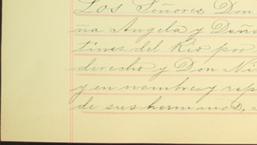 Los Señores Don
ña Angela y Doña
tinez del Rio por
derecho y Don Ni
y en nombre y rep
de sus hermanos,